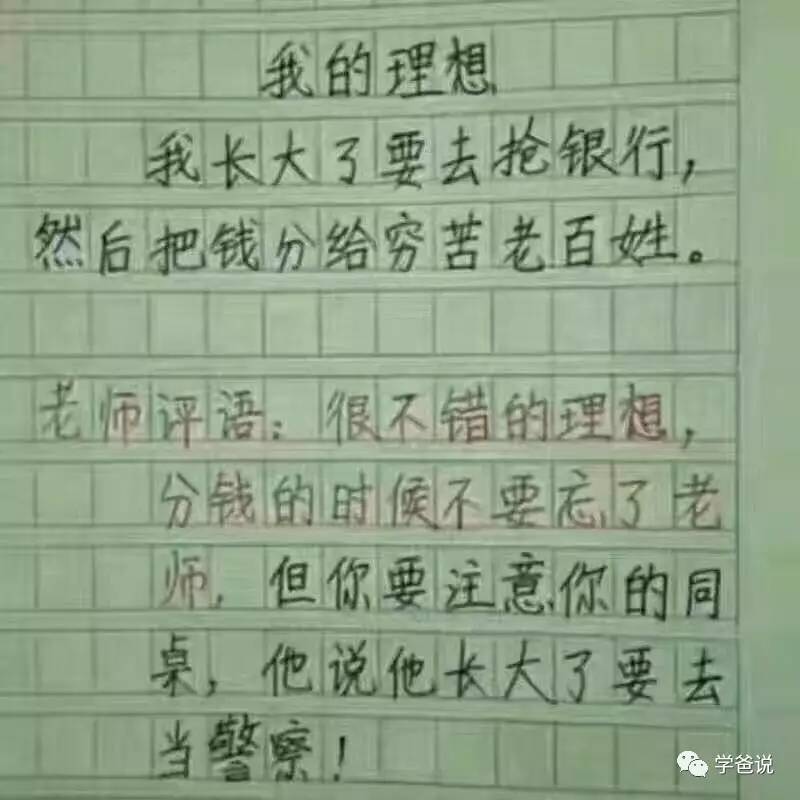 我的理想
我长大了要去抢银行,
然后把钱分给穷苦老百姓。
老师评语:很不错的理想,
分钱的时候不要忘了老
师,但你要注意你的同
桌,他说他长大了要去
当警察!
学爸说